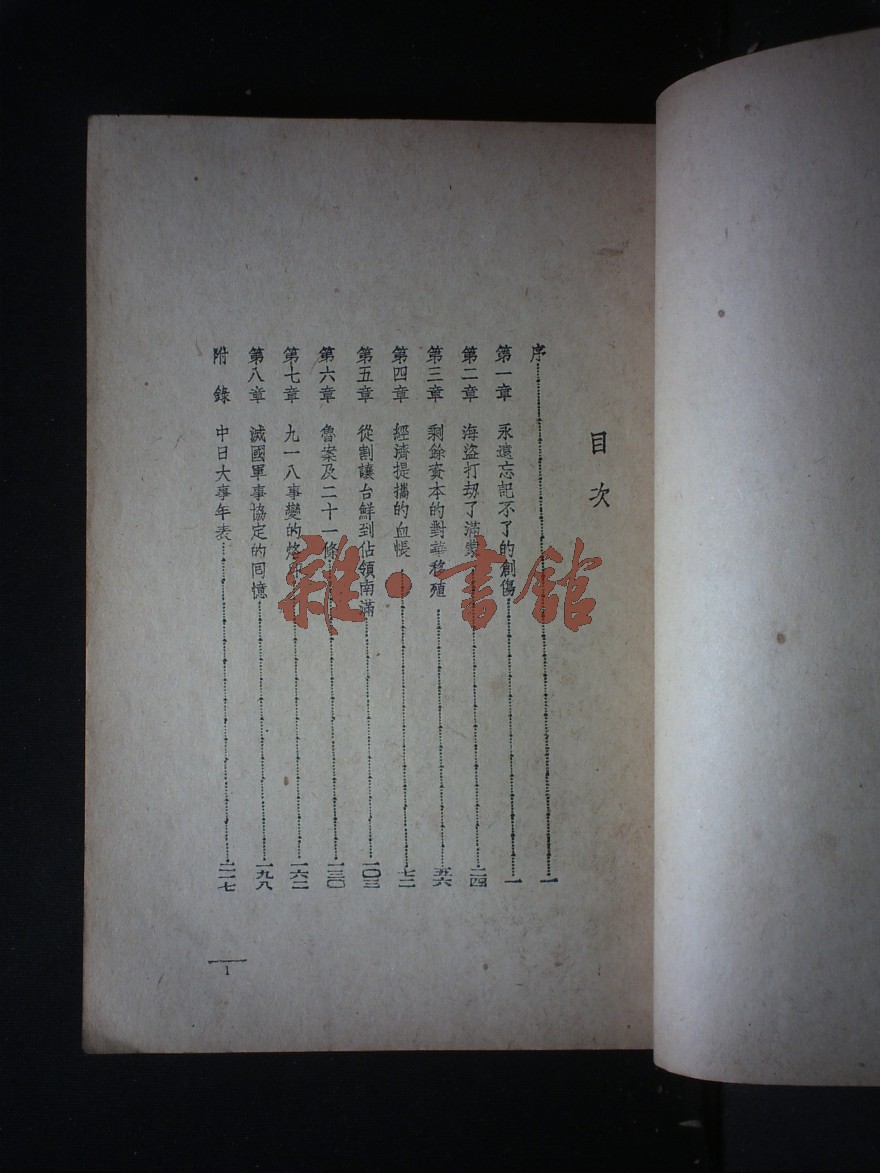 目次
序 一
第一章 永遠忘記不了的創傷 一
第二章 海盜打刼了滿蒙 二四
第三章 剩餘資本的對華移殖 五六
第四章 經濟提攜的血帳 七二
第五章 從割讓台鮮到佔領南滿 一〇三
第六章 魯案及二十一條 一三〇
第七章 九一八事變的烙 一六二
第八章 滅國軍事協定的回憶 一九八
附錄 中日大事年表 二一七
1
雜·書館